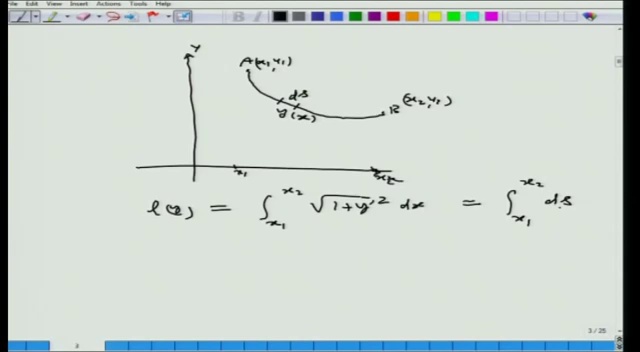 Edit View Insert Actions Tools Help
B
Y
A(x₁,y₁)
ds
y(x)
B (x₂,y₁)
x₁
l(y) = ∫_{x₁}^{x₂} √(1+y'²) dx = ∫_{x₁}^{x₂} ds
3 / 25
3